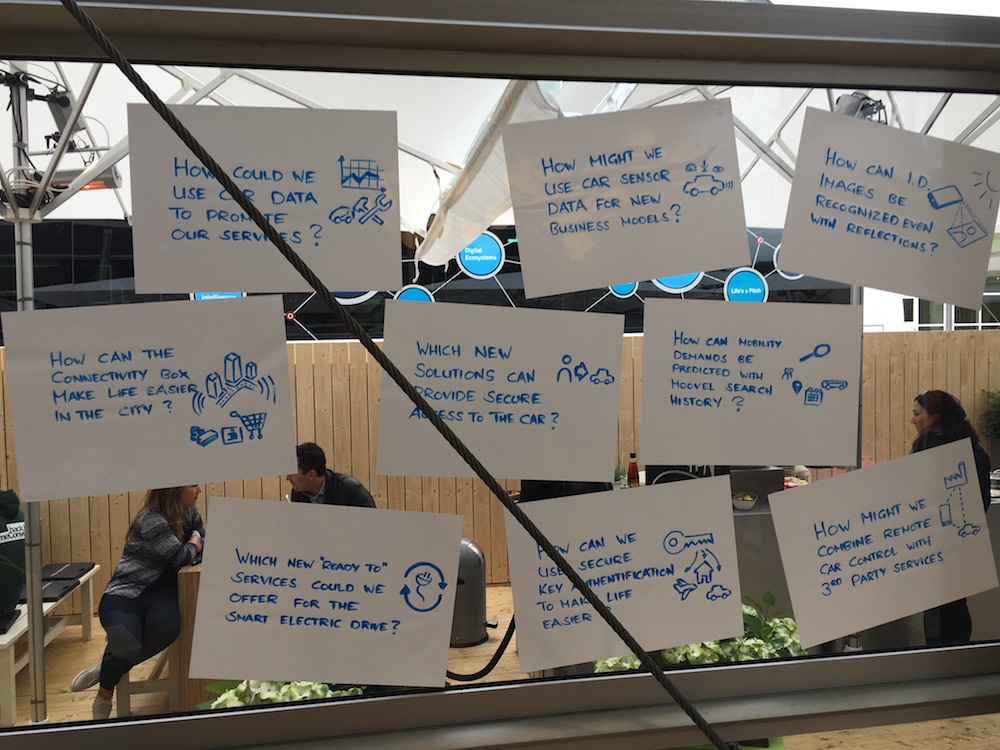 HOW COULD WE
USE CAR DATA
TO PROMOTE
OUR SERVICES?
HOW MIGHT WE
USE CAR SENSOR
DATA FOR NEW
BUSINESS MODELS?
HOW CAN I.D.
IMAGES BE
RECOGNIZED EVEN
WITH REFLECTIONS?
Digital
Ecosystems
Life's a Pitch
Intelligence
HOW CAN THE
CONNECTIVITY BOX
MAKE LIFE EASIER
IN THE CITY?
WHICH NEW
SOLUTIONS CAN
PROVIDE SECURE
ACCESS TO THE CAR?
HOW CAN MOBILITY
DEMANDS BE
PREDICTED WITH
MOOVEL SEARCH
HISTORY?
WHICH NEW "READY TO"
SERVICES COULD WE
OFFER FOR THE
SMART ELECTRIC DRIVE?
HOW CAN WE
USE SECURE
KEY AUTHENTIFICATION
TO MAKE LIFE
EASIER
HOW MIGHT WE
COMBINE REMOTE
CAR CONTROL WITH
3RD PARTY SERVICES